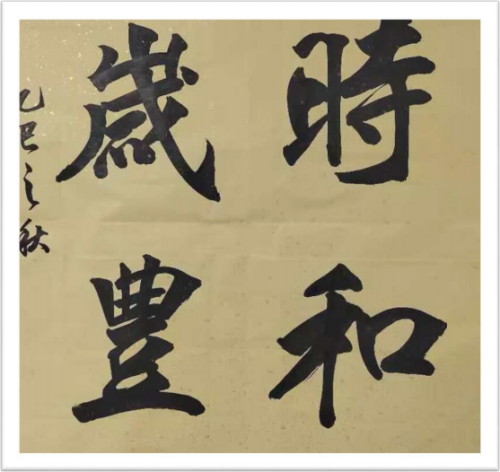 時和
歲豐
乙巳之秋